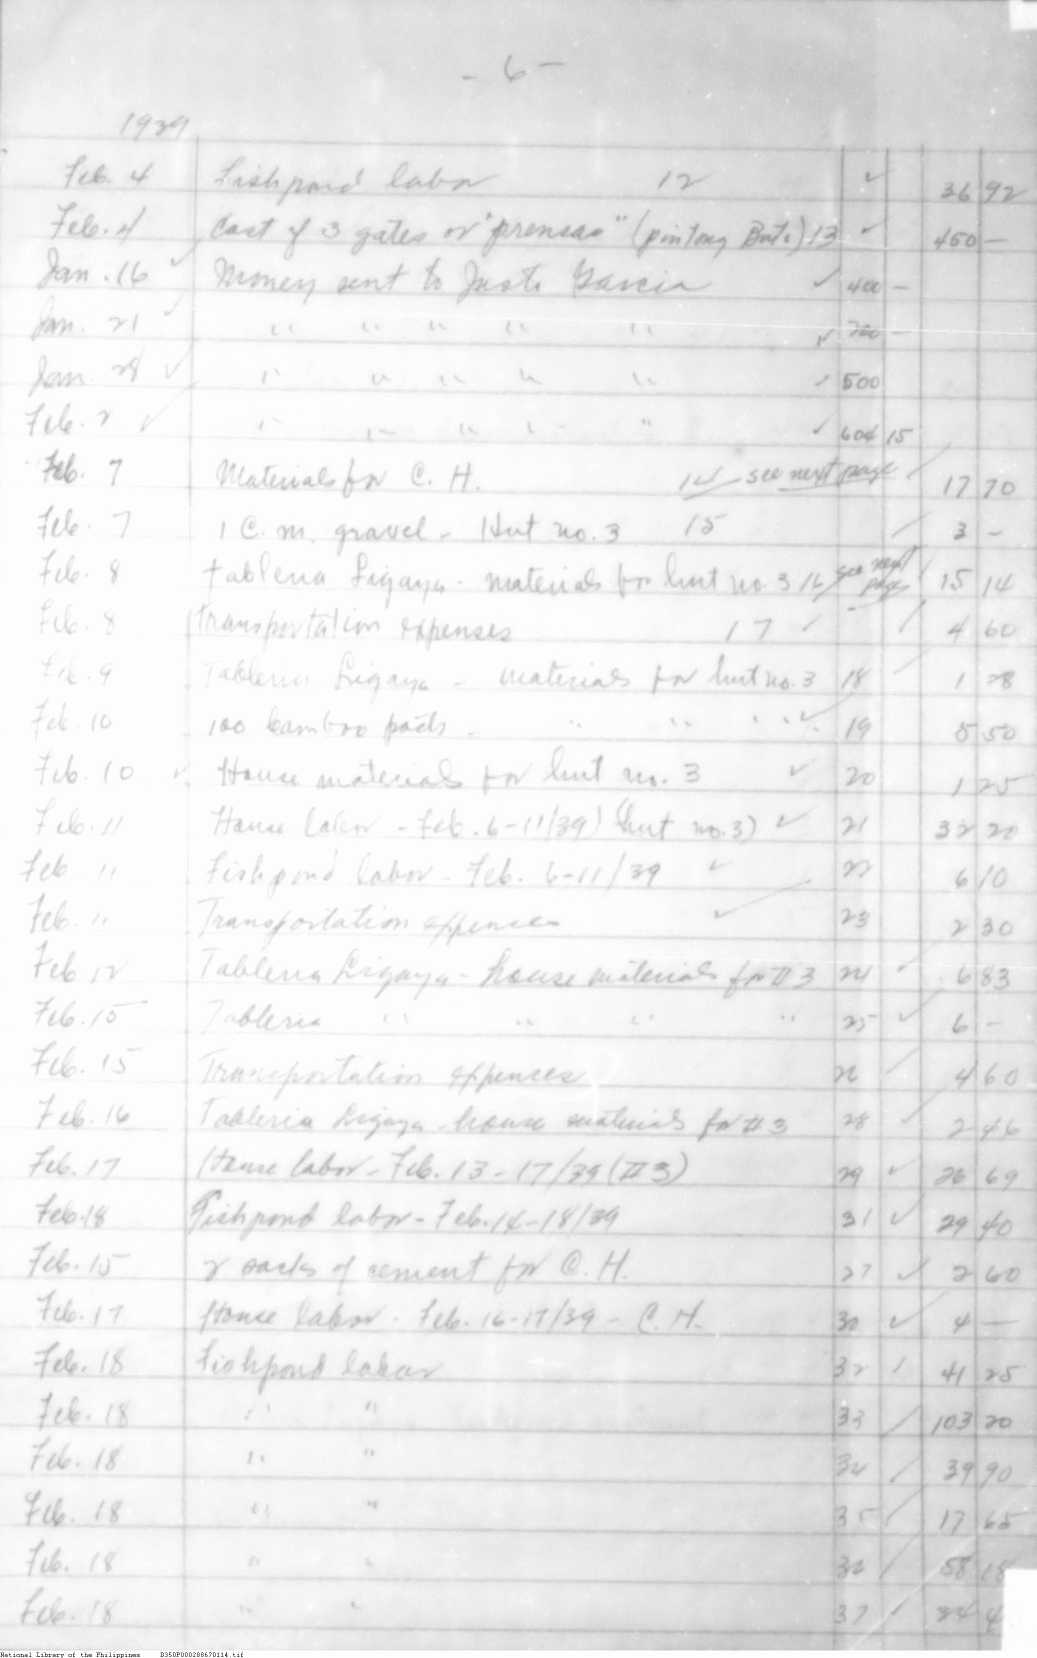 - 6 -
1939
Feb. 4 Fishpond labor 12 ✓ 36 92
Feb. 4 Cost of 3 gates or "prensas" (pintong Bato) 13 ✓ 450 —
Jan. 16 ✓ Money sent to Justo Garcia ✓ 400 —
Jan. 21 ✓ " " " " " ✓ 700 —
Jan. 28 ✓ " " " " " ✓ 500
Feb. 2 ✓ " " " " " ✓ 604 15
Feb. 7 Materials for C. H. 14 - see next page ✓ 17 70
Feb. 7 1 C. m. gravel - Hut no. 3 15 ✓ 3 —
Feb. 8 Tableria Ligaya - materials for hut no. 3 16 see next page ✓ 15 14
Feb. 8 Transportation expenses 17 ✓ ✓ 4 60
Feb. 9 Tableria Ligaya - materials for hut no. 3 18 ✓ 1 28
Feb. 10 100 bamboo " " " ✓ 19 5 50
Feb. 10 ✓ House materials for hut no. 3 ✓ 20 1 25
Feb. 11 House labor - Feb. 6-11/39) (hut no. 3) ✓ 21 32 20
Feb 11 Fishpond labor - Feb. 6-11/39 ✓ 22 6 10
Feb. 11 Transportation expenses ✓ 23 2 30
Feb 12 Tableria Ligaya - house materials for #3 24 ✓ 6 83
Feb. 15 Tableria " " " " 25 ✓ 6 —
Feb. 15 Transportation expenses 26 ✓ 4 60
Feb. 16 Tableria Ligaya - house materials for #3 28 ✓ 2 46
Feb. 17 House labor - Feb. 13 - 17/39 (#3) 29 ✓ 26 69
Feb. 18 Fishpond labor - Feb. 14-18/39 31 ✓ 29 40
Feb. 15 2 sacks of cement for C. H. 27 ✓ 2 60
Feb. 17 House labor - Feb. 16-17/39 - C. H. 30 ✓ 4 —
Feb. 18 Fishpond labor 32 ✓ 41 25
Feb. 18 " " 33 ✓ 103 20
Feb. 18 " " 34 ✓ 39 90
Feb. 18 " " 35 ✓ 17 65
Feb. 18 " " 36 ✓ 58
Feb. 18 " " 37 ✓
National Library of the Philippines D350P000288670114.tif